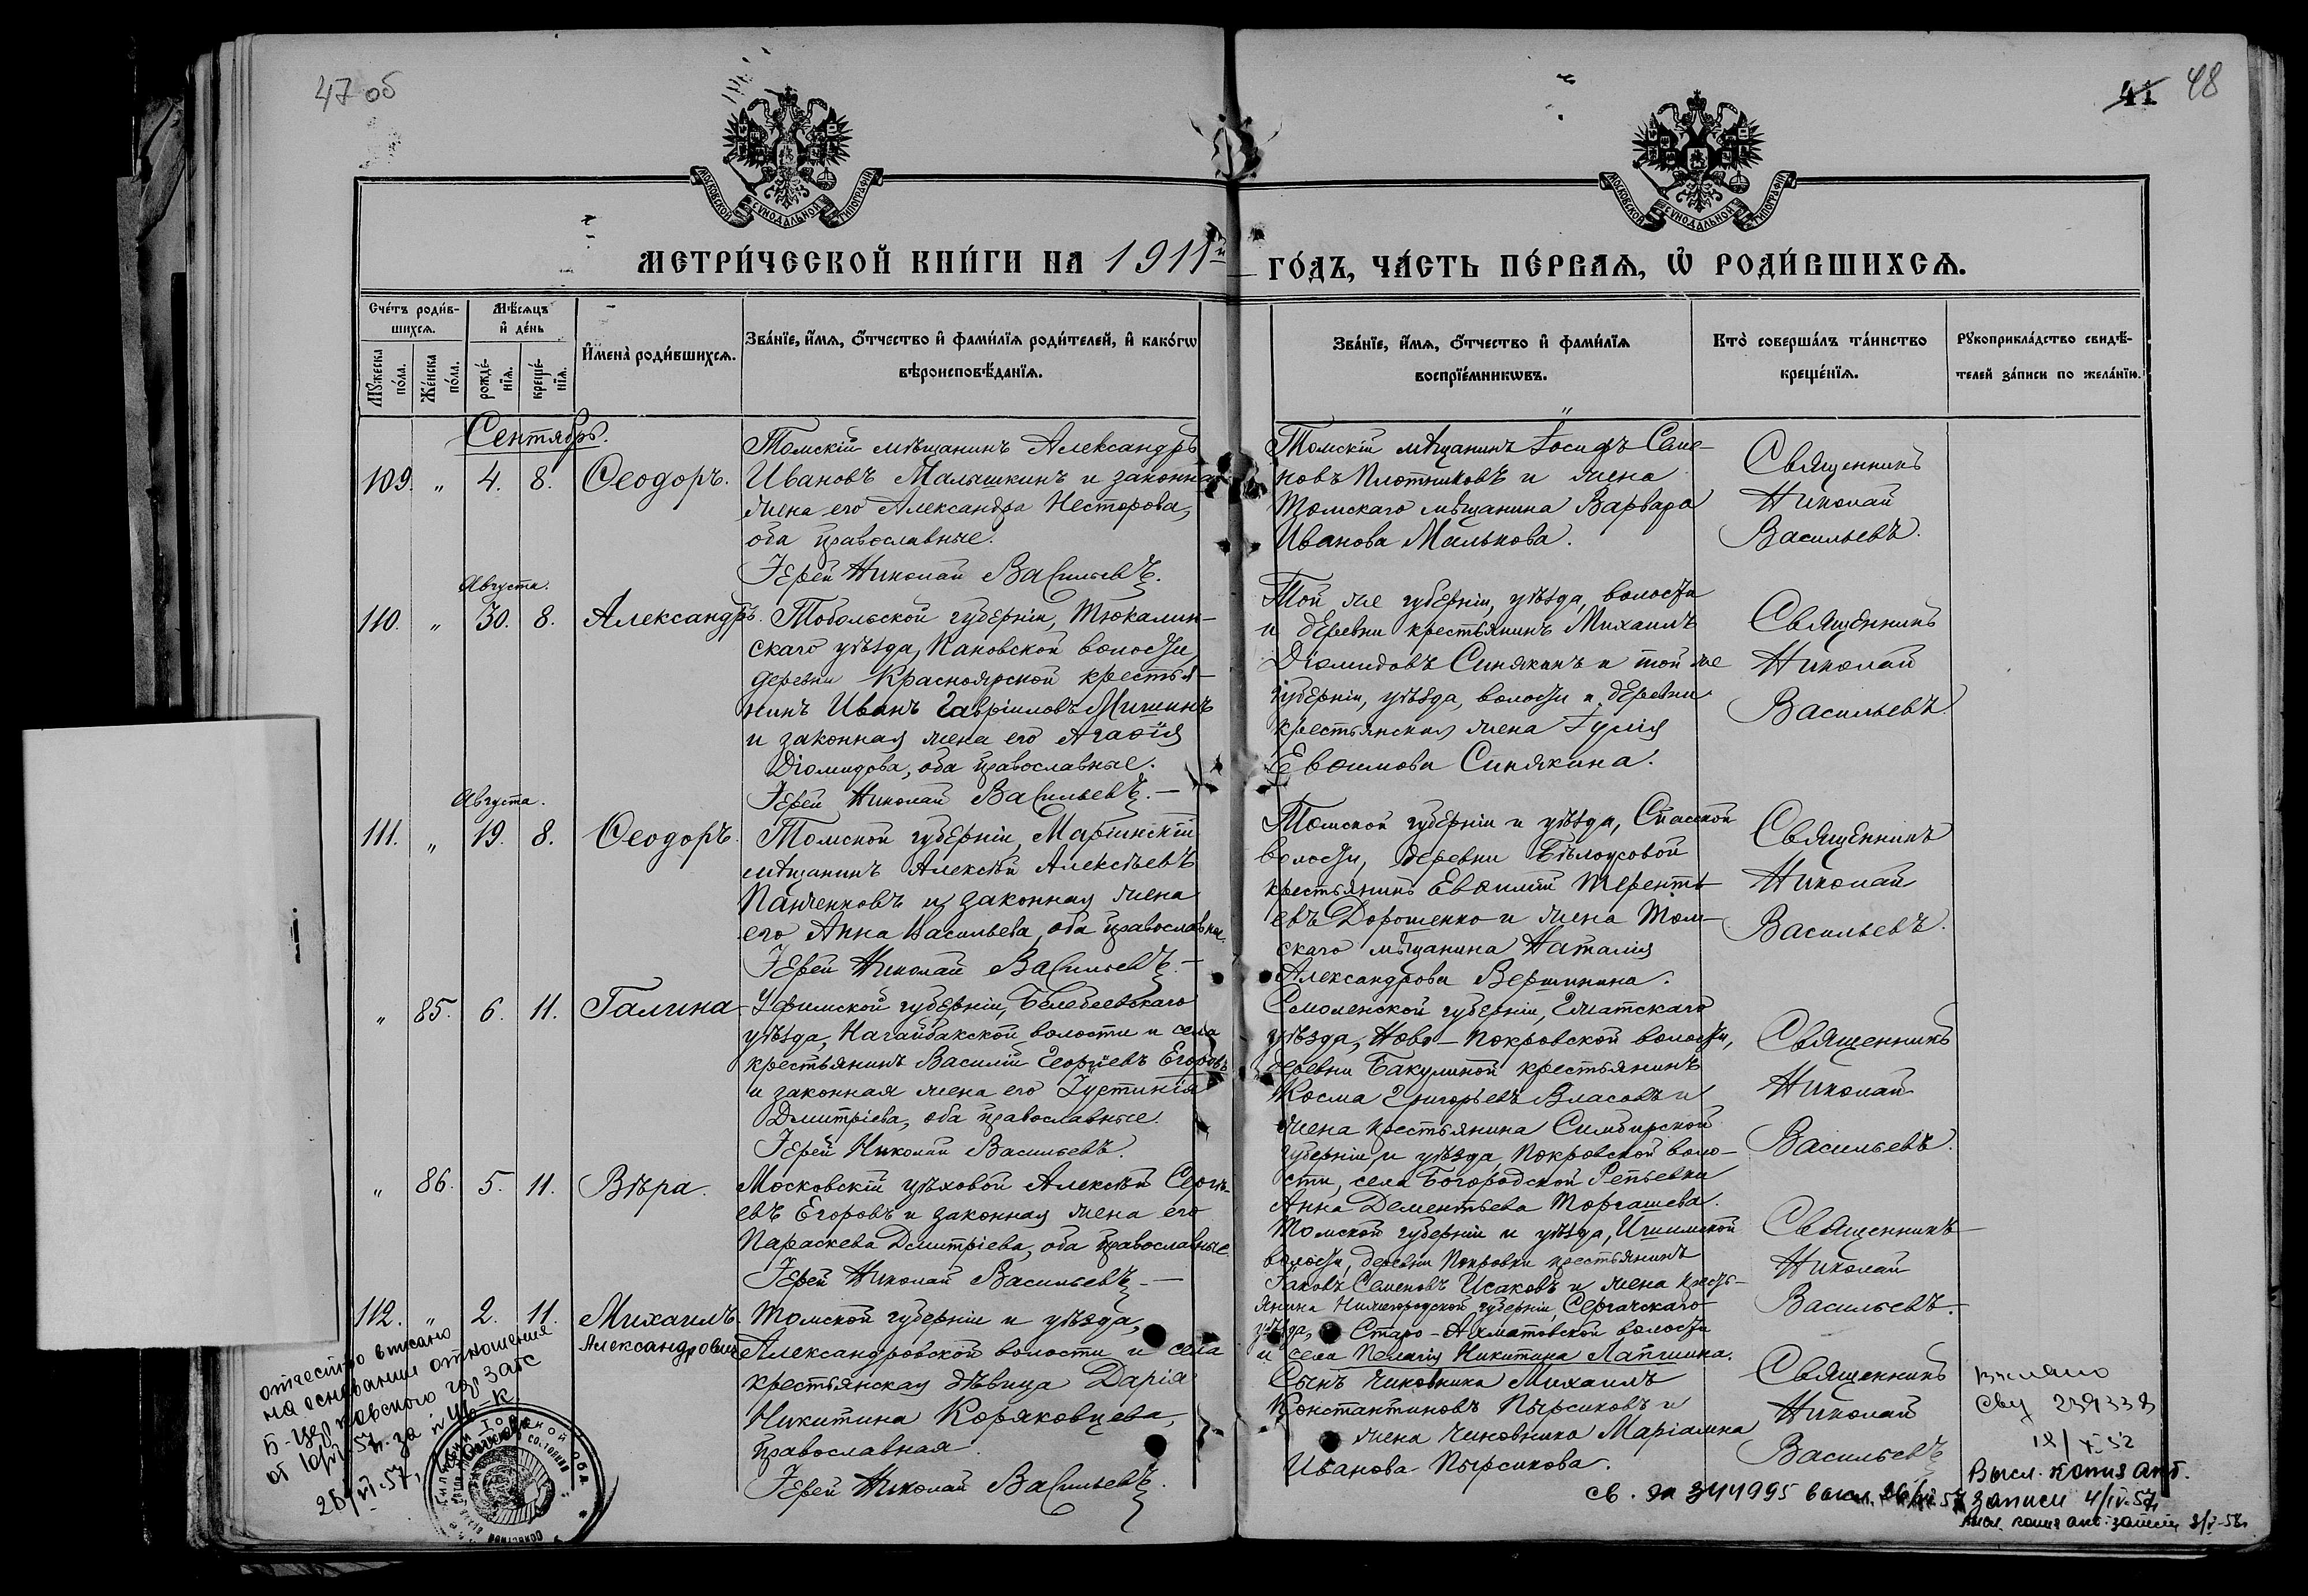 47 об
41 48
МОСКОВСКОЙ СѴНОДАЛЬНОЙ ТИПОГРАФІИ
МОСКОВСКОЙ СѴНОДАЛЬНОЙ ТИПОГРАФІИ
МЕТРИ́ЧЕСКОЙ КНИ́ГИ НА 1911й ГО́ДЪ, ЧА́СТЬ ПЕ́РВАѦ, Ѡ҆ РОДИ́ВШИХСѦ.
Сче́тъ роди́в-
шихсѧ.
Мꙋ́жеска по́ла.
Же́нска по́ла.
Мѣ́сѧцъ
и҆ де́нь
рожде́-
нїѧ.
креще́-
нїѧ.
И҆мена̀ роди́вшихсѧ.
Зва́нїе, и҆́мѧ, ѻ҆́тчество и҆ фами́лїѧ роди́телей, и҆ како́гѡ
вѣроисповѣ́данїѧ.
Зва́нїе, и҆́мѧ, ѻ҆́тчество и҆ фами́лїѧ
воспрїе́мникѡвъ.
Кто̀ соверша́лъ та́инство
креще́нїѧ.
Рꙋкоприкла́дство свидѣ́-
телей за́писи по жела́нїю.
Сентябрь.
109. " 4. 8. Ѳеодоръ.
Томскій мѣщанинъ Александръ
Ивановъ Малышкинъ и законная
жена его Александра Несторова,
оба православные.
Іерей Николай Васильевъ.
Томскій мѣщанинъ Іосифъ Семе-
новъ Плотниковъ и жена
Томскаго мѣщанина Варвара
Иванова Малькова.
Священникъ
Николай
Васильевъ.
Августа.
110. " 30. 8. Александръ.
Тобольской губерніи, Тюкалин-
скаго уѣзда, Пановской волости
деревни Красноярской крестья-
нинъ Иванъ Гавріиловъ Мишинъ
и законная жена его Агаѳія
Діомидова, оба православные.
Іерей Николай Васильевъ.
Той же губерніи, уѣзда, волости
и деревни крестьянинъ Михаилъ
Діомидовъ Синякинъ и той же
губерніи, уѣзда, волости и деревни
крестьянская жена Іулія
Евѳимова Синякина.
Священникъ
Николай
Васильевъ.
Августа.
111. " 19. 8. Ѳеодоръ.
Томской губерніи, Маріинскій
мѣщанинъ Алексѣй Алексѣевъ
Панченковъ и законная жена
его Анна Васильева, оба православные.
Іерей Николай Васильевъ.
Томской губерніи и уѣзда, Спасской
волости, деревни Бѣлоусовой
крестьянинъ Евѳимій Терентъ-
евъ Дорошенко и жена Том-
скаго мѣщанина Наталія
Александрова Вершинина.
Священникъ
Николай
Васильевъ.
" 85. 6. 11. Галина
Уфимской губерніи, Белебеевскаго
уѣзда, Нагайбакской волости и села
крестьянинъ Василій Георгіевъ Егоровъ
и законная жена его Іустинія
Дмитріева, оба православные.
Іерей Николай Васильевъ.
Смоленской губерніи, Гжатскаго
уѣзда, Ново-Покровской волости,
деревни Бакулиной крестьянинъ
Косма Григорьевъ Власовъ и
жена крестьянина Симбирской
губерніи и уѣзда, Покровской воло-
сти, села Богородской Репьевки
Анна Дементьева Торгашева.
Священникъ
Николай
Васильевъ.
" 86. 5. 11. Вѣра.
Московскій цѣховой Алексѣй Сергѣ-
евъ Егоровъ и законная жена его
Параскева Дмитріева, оба православные.
Іерей Николай Васильевъ.
Томской губерніи и уѣзда, Ишимской
волости, деревни Покровки крестьянинъ
Іаковъ Семеновъ Исаковъ и жена кресть-
янина Нижегородской губерніи, Сергачскаго
уѣзда, Старо-Ахматовской волости
и села Пелагія Никитина Лапшина.
Священникъ
Николай
Васильевъ.
112. " 2. 11. Михаилъ
Александрович
Томской губерніи и уѣзда,
Александровской волости и села
крестьянская дѣвица Дарія
Никитина Коряковцева,
православная.
Іерей Николай Васильевъ.
Сынъ чиновника Михаилъ
Константиновъ Пырсиковъ и
жена чиновника Маріамна
Иванова Пырсикова.
Священникъ
Николай
Васильевъ
отчество вписано
на основании отношения
горЗАГС
26/VI-57,
Выслано
Св. за 344995 высл.
Высл. копия акт.
записи 4/IV-57г
высл. копия акт. записи